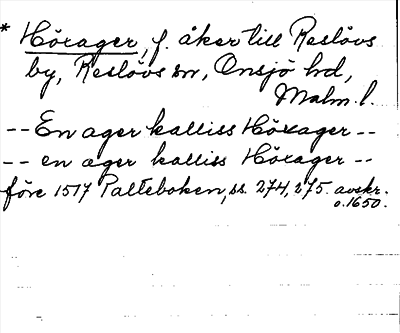 * Hörager, f. åker till Reslövs
by, Reslövs sn, Onsjö hd,
Malm. l.
-- En ager kalliss Höxager --
-- en ager kalliss Hörager --
före 1517 Palteboken, ss. 274, 275. avskr.
o. 1650.